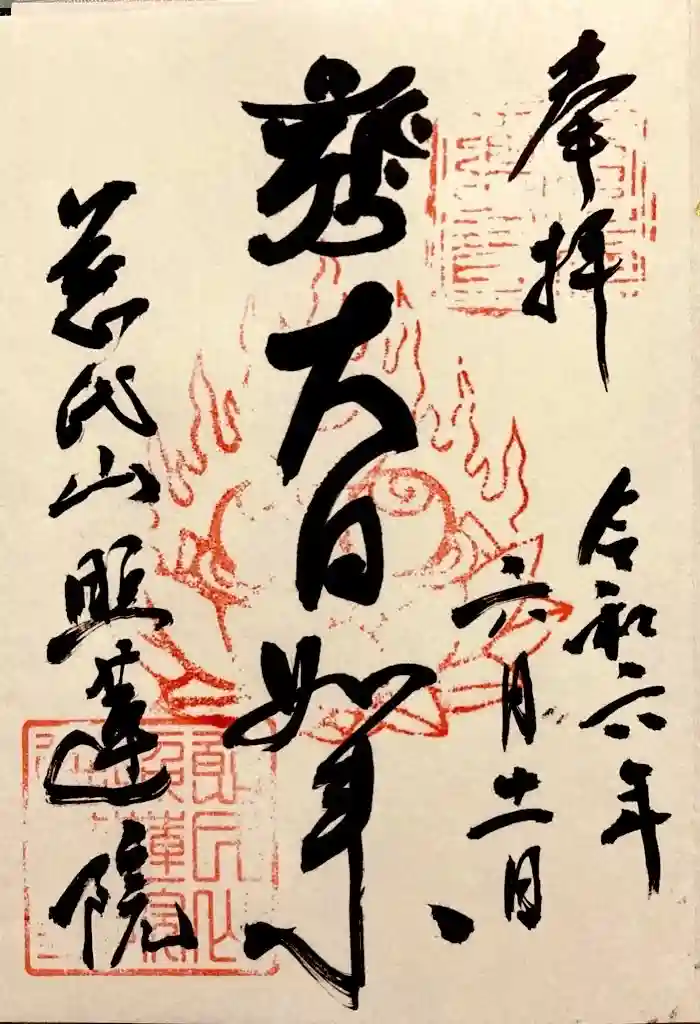 奉拝
令和六年
六月十一日
大日如来
慈氏山照蓮院